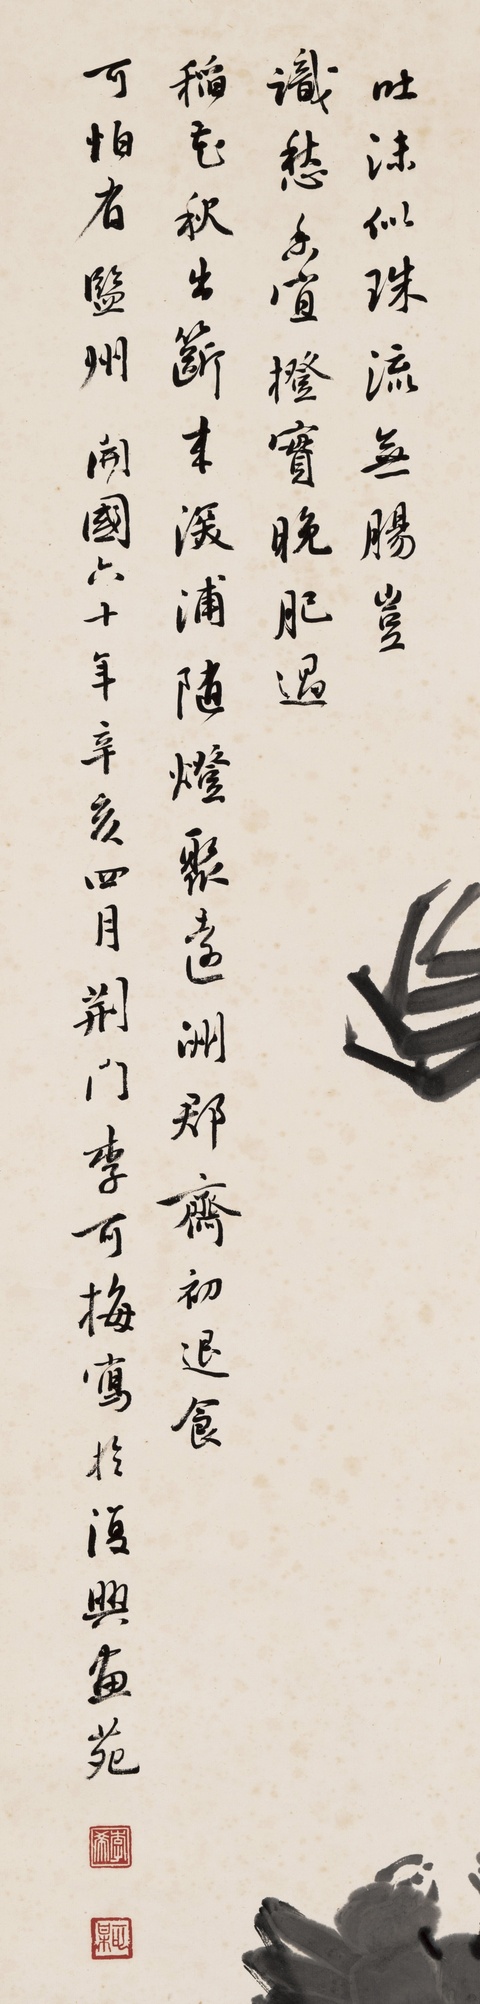 吐沫似珠流無腸豈
識愁香宜橙實晚肥過
稻花秋出籪來深浦隨燈聚遠洲郡齋初退食
可怕有監州 開國六十年辛亥四月荆門李可梅寫於復興畫苑